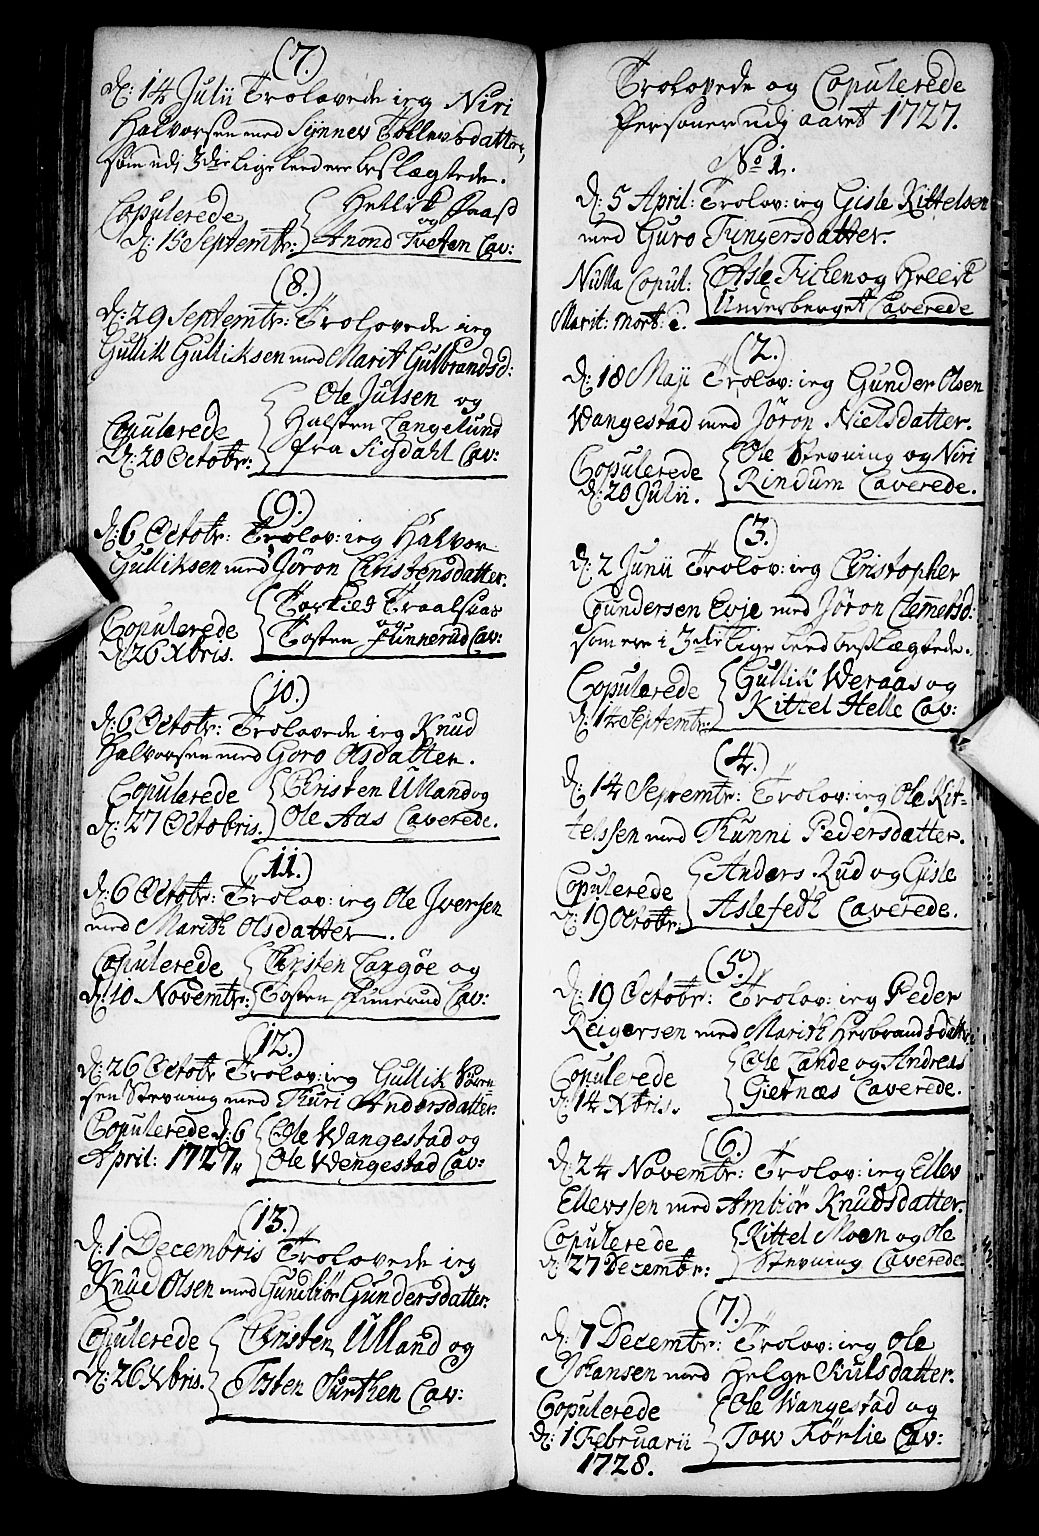 (7.)
d: 14 Julii Trolovede ieg Niri
Halvorsen med Synnev Tollevsdatter,
som udj 3die Lige leed ere beslægtede.
Copulerede
d: 15 Septembr:
Hellik Faas
og
Anond Tveten Cav:
(8.)
d: 29 Septembr: Trolovede ieg
Gullik Gulliksen med Marit Gulbrandsd:
Copulerede
d: 20 Octobr:
Ole Julsen og
Halsten Langelund
fra Sigdahl Cav:
(9.)
d: 6 Octobr: Trolov: ieg Halvor
Gulliksen med Jøron Christensdatter.
Copulerede
d: 26 Xbris.
Torkild Traalsaas
og
Tosten Funnerud Cav:
(10.)
d: 6 Octobr: Trolovede ieg Knud
Halvorsen med Goro Olsdatter.
Copulerede
d: 27 Octobris.
Christen Ulland og
Ole Aas Caverede.
(11.)
d: 6 Octobr: Trolov: ieg Ole Iversen
med Marith Olsdatter.
Copulerede
d: 10 Novembr:
Christen Laxgøe og
Tosten Funnerud Cav:
(12.)
d: 26 Octobr Trolov: ieg Gullik Søren
sen Stevning med Thuri Andersdatter.
Copulerede d: 6
April: 1727.
Ole Wangestad og
Ole Wengestad Cav:
(13.)
d: 1 Decembris Trolovede ieg
Knud Olsen med Gunbiør Gundersdatter.
Copulerede
d: 26 Xbris.
Christen Ulland og
Tosten Surthen Cav:
Trolovede og Copulerede
Personer udj aaret 1727.
No 1.
d: 5 April: Trolov: ieg Gisle Kittelsen
med Guro Tingersdatter.
Nulla Copul:
Marit: mort: e.
Asle Ficken og Hellik
Underberget Caverede
(2.)
d: 18 Maji Trolov: ieg Gunder Olsen
Wangestad med Jøron Nielsdatter.
Copulerede
d: 20 Julii.
Ole Stevning og Niri
Rindum Caverede.
(3.)
d: 2 Junii Trolov: ieg Christopher
Gundersen Evje med Jøron Clemetsd:
som ere i 3die Lige leed beslægtede.
Copulerede
d: 14 Septembr:
Gullik Weraas og
Kittel Helle Cav:
(4.)
d: 14 Septembr: Trolov: ieg Ole Kit-
telssen med Thunni Pedersdatter.
Copulerede
d: 19 Octobr:
Anders Rud og Gisle
Aslefedt Caverede.
(5.)
d: 19 Octobr: Trolov: ieg Peder
Reigersen med Marith Herbrandsdatter.
Copulerede
d: 14 Xbris.
Ole Lande og Andreas
Giernæs Caverede.
(6.)
d: 24 Novembr: Trolov: ieg Ellev
Ellevssen med Ambiør Knudsdatter.
Copulerede
d: 27 Decembr:
Kittel Moen og Ole
Stevning Caverede
(7.)
d: 7 Decembr: Trolov: ieg Ole
Johansen med Helge Skulsdatter.
Copulerede
d: 1 Februarii
1728.
Ole Wangestad og
Tow Førlie Cav: